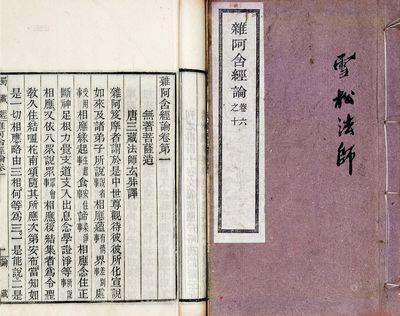 雜阿含經論卷第一
無著菩薩造
唐三藏玄奘譯
雜阿笈摩者謂於是中世尊觀待彼彼所化宣說
如來及諸弟子所說相應蘊界處
相應緣起食諦相應念住正
斷神足根力覺支道支入出息念學證淨等
相應又依八眾說眾相應後結集者為令聖
教久住結嗢柁南頌隨其所應次第安布當知如
是一切相應略由三相何等為三一是能說二是
雜阿含經論
卷六
之十
雪松法師